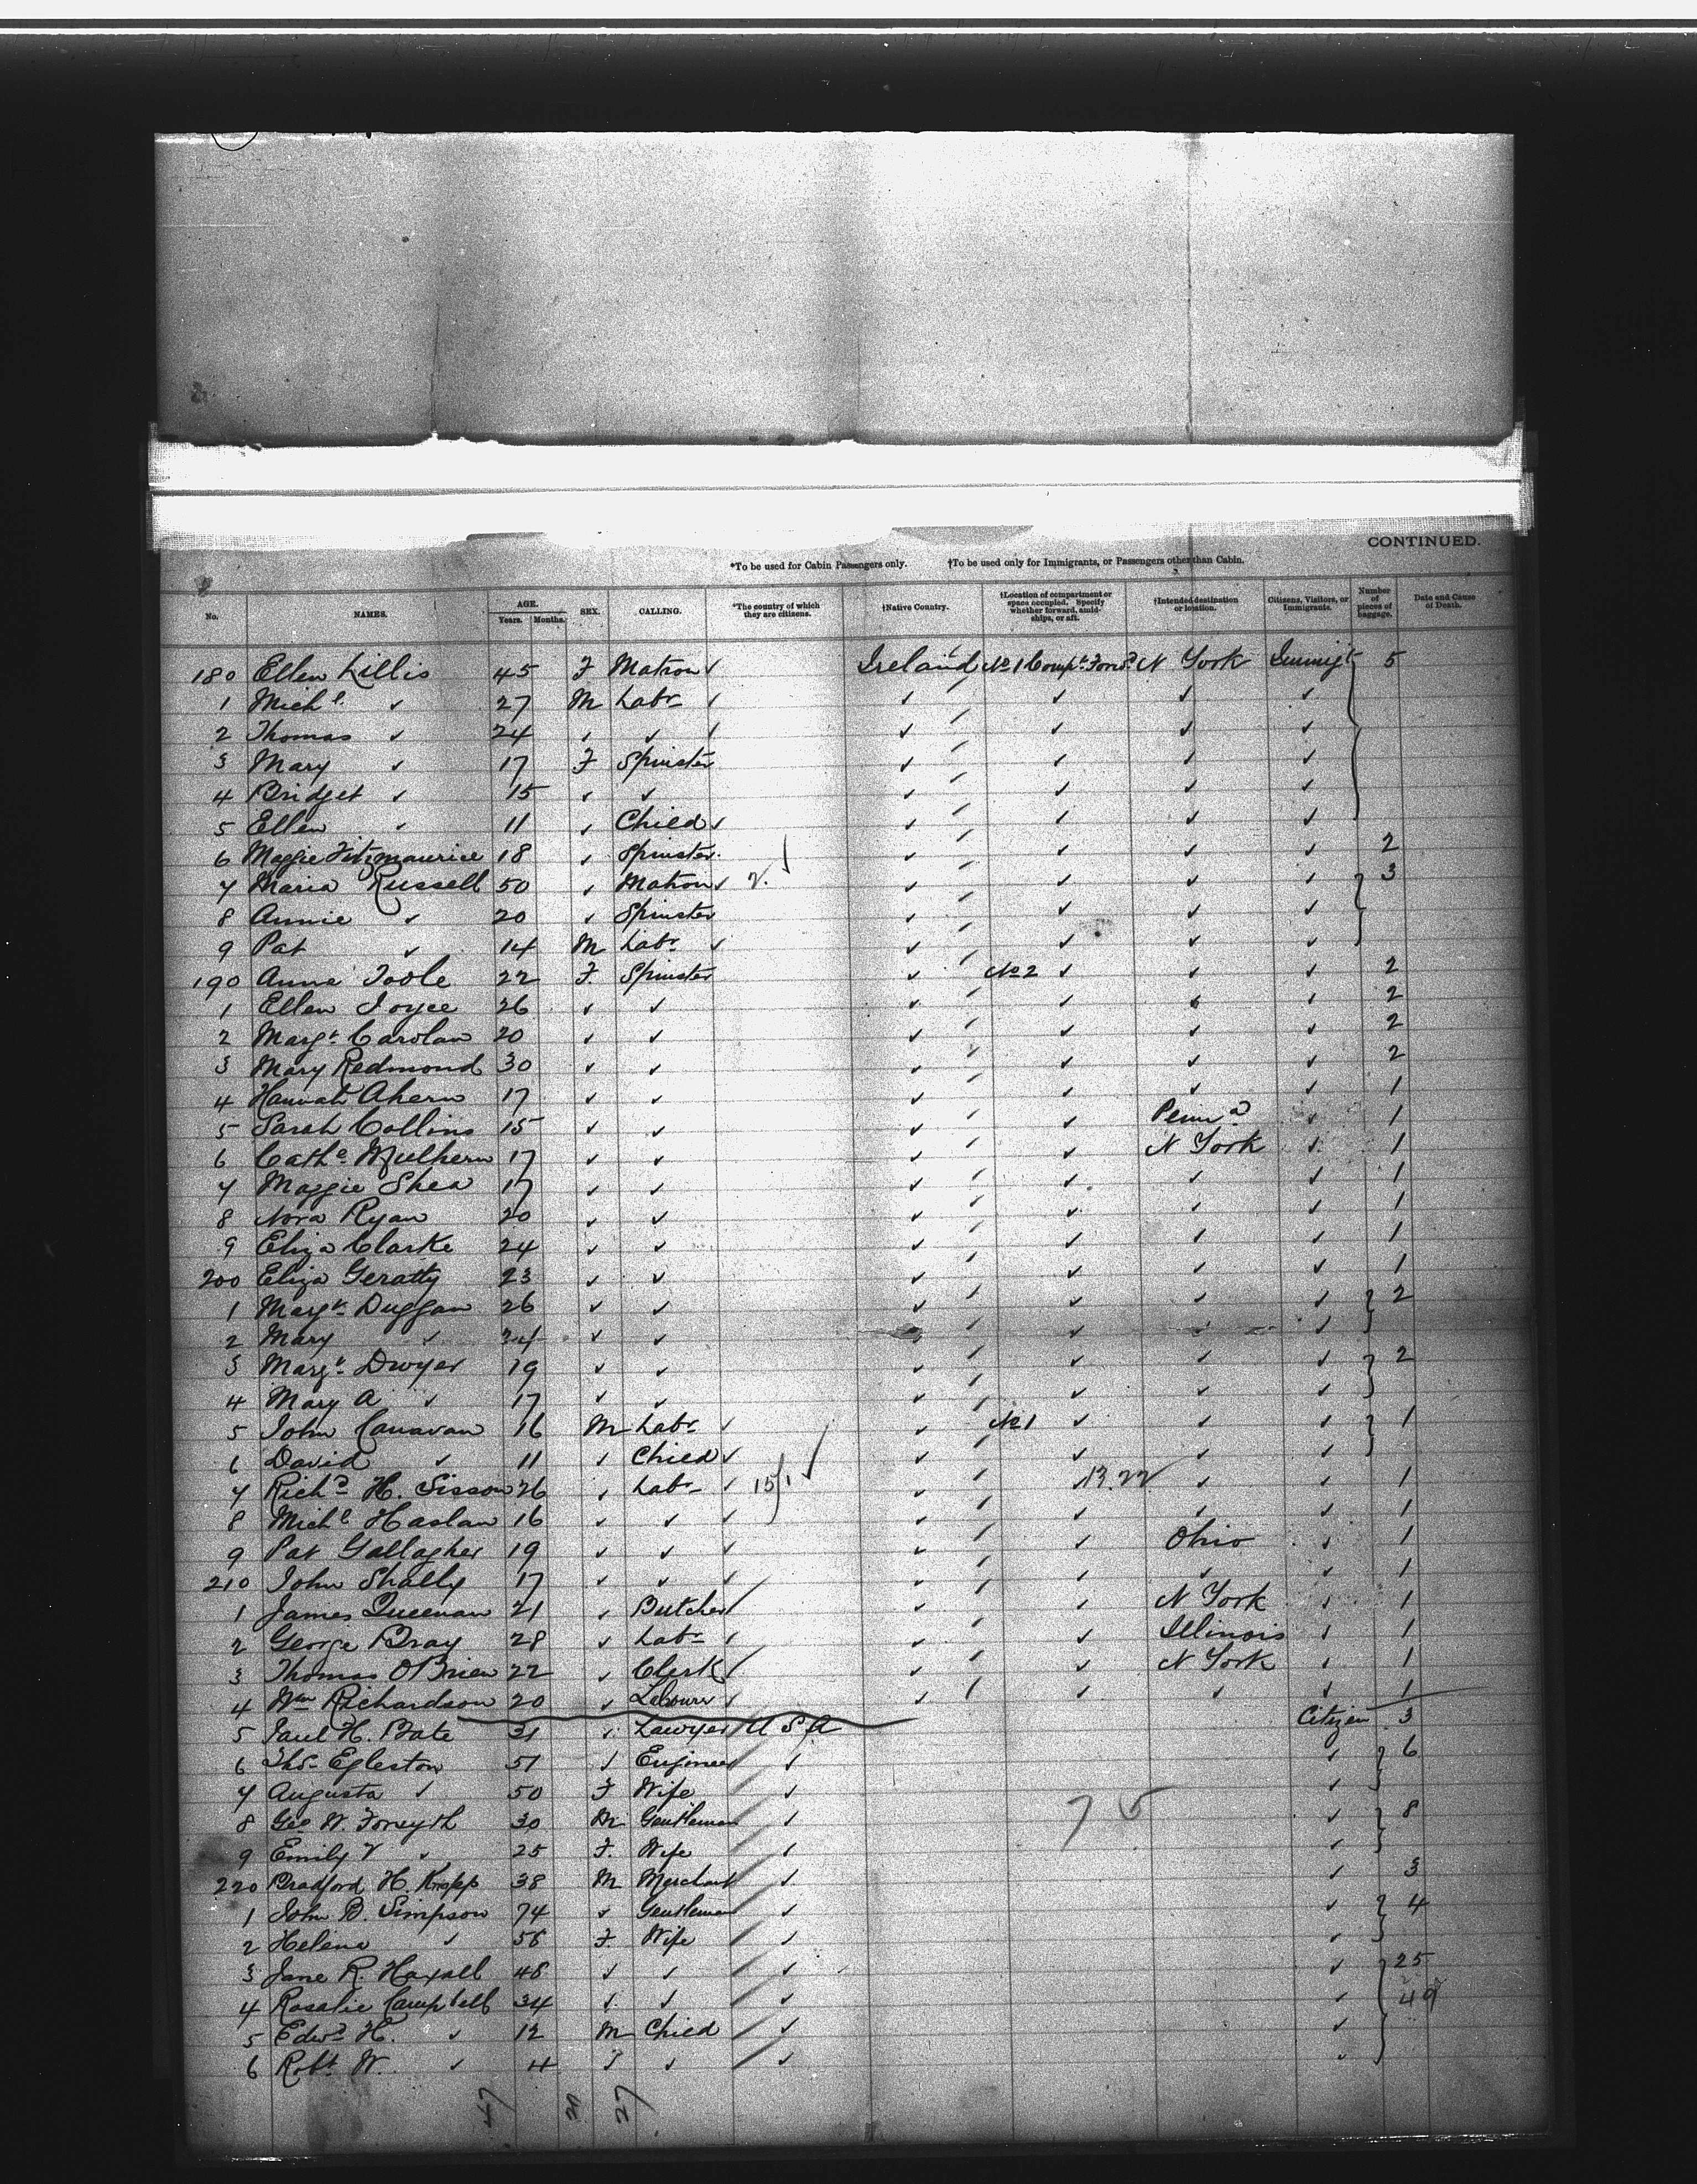 CONTINUED.
*To be used for Cabin Passengers only. †To be used only for Immigrants, or Passengers other than Cabin.
No. NAMES. AGE. Years. Months. SEX. CALLING. *The country of which they are citizens. †Native Country. †Location of compartment or space occupied. Specify whether forward, amidships, or aft. †Intended destination or location. Citizens, Visitors, or Immigrants. Number of pieces of baggage. Date and Cause of Death.
180 Ellen Lillis 45 F Matron ✓ Ireland No 1 Compt. Forwd. N York Immigt 5
1 Michl ✓ 27 M Labr ✓ ✓ ✓ ✓ ✓
2 Thomas ✓ 24 ✓ ✓ ✓ ✓ ✓ ✓ ✓
3 Mary ✓ 17 F Spinster ✓ ✓ ✓ ✓
4 Bridget ✓ 15 ✓ ✓ ✓ ✓ ✓ ✓
5 Ellen ✓ 11 ✓ Child ✓ ✓ ✓ ✓ ✓
6 Maggie Fitzmaurice 18 ✓ Spinster ✓ ✓ ✓ ✓ 2
7 Maria Russell 50 ✓ Matron ✓ 2. ✓ ✓ ✓ ✓ ✓ 3
8 Annie ✓ 20 ✓ Spinster ✓ ✓ ✓ ✓
9 Pat ✓ 14 M Labr ✓ ✓ ✓ ✓ ✓
190 Anne Toole 22 F. Spinster ✓ No 2 ✓ ✓ ✓ 2
1 Ellen Joyce 26 ✓ ✓ ✓ ✓ ✓ ✓ 2
2 Margt Carolan 20 ✓ ✓ ✓ ✓ ✓ ✓ 2
3 Mary Redmond 30 ✓ ✓ ✓ ✓ ✓ ✓ 2
4 Hannah Ahern 17 ✓ ✓ ✓ ✓ ✓ ✓ 1
5 Sarah Collins 15 ✓ ✓ ✓ ✓ Penna ✓ 1
6 Cathe Mulhern 17 ✓ ✓ ✓ ✓ N York ✓ 1
7 Maggie Shea 17 ✓ ✓ ✓ ✓ ✓ ✓ 1
8 Nora Ryan 20 ✓ ✓ ✓ ✓ ✓ ✓ 1
9 Eliza Clarke 24 ✓ ✓ ✓ ✓ ✓ ✓ 1
200 Eliza Geratty 23 ✓ ✓ ✓ ✓ ✓ ✓ 1
1 Margt Duggan 26 ✓ ✓ ✓ ✓ ✓ ✓ 2
2 Mary ✓ 24 ✓ ✓ ✓ ✓ ✓ ✓
3 Margt Dwyer 19 ✓ ✓ ✓ ✓ ✓ ✓ 2
4 Mary A ✓ 17 ✓ ✓ ✓ ✓ ✓ ✓
5 John Canavan 16 M Labr ✓ ✓ No 1 ✓ ✓ ✓ 1
6 David ✓ 11 ✓ Child ✓ ✓ ✓ ✓ ✓
7 Richd H. Sisson 26 ✓ Labr ✓ 15/1 ✓ ✓ ✓ 13.22 ✓ ✓ 1
8 Michl Haslam 16 ✓ ✓ ✓ ✓ ✓ ✓ ✓ 1
9 Pat Gallagher 19 ✓ ✓ ✓ ✓ ✓ Ohio ✓ 1
210 John Shally 17 ✓ ✓ ✓ ✓ ✓ ✓ ✓ 1
1 James Queenan 21 ✓ Butcher ✓ ✓ ✓ N York ✓ 1
2 George Bray 28 ✓ Labr ✓ ✓ ✓ Illinois ✓ 1
3 Thomas OBrien 22 ✓ Clerk ✓ ✓ ✓ N York ✓ 1
4 Wm Richardson 20 ✓ Labourer ✓ ✓ ✓ ✓ ✓ 1
5 Paul H. Bate 31 ✓ Lawyer U S A Citizen 3
6 Thos Egleston 51 ✓ Engineer ✓ ✓ 6
7 Augusta ✓ 50 F Wife ✓ ✓
8 Geo W. Forsyth 30 M Gentleman ✓ 75 ✓ 8
9 Emily V ✓ 25 F. Wife ✓ ✓
220 Bradford H. Kropp 38 M Merchant ✓ ✓ 3
1 John B. Simpson 74 ✓ Gentleman ✓ ✓ 4
2 Helena ✓ 58 F. Wife ✓ ✓
3 Jane R. Haxall 48 ✓ ✓ ✓ ✓ 25
4 Rosalie Campbell 34 ✓ ✓ ✓ ✓ 49
5 Edwd H. ✓ 12 M Child ✓ ✓
6 Robt W. ✓ 4 ✓ ✓ ✓ ✓
47 20 27